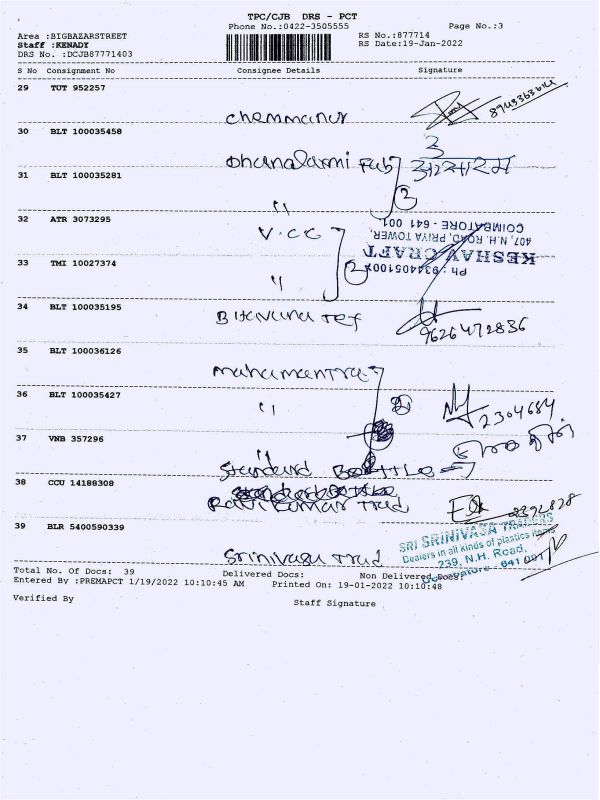 TPC/CJB DRS - PCT
Phone No.:0422-3505555
Page No.:3
Area :BIGBAZARSTREET
RS No.:877714
Staff :KENADY
RS Date:19-Jan-2022
DRS No. :DCJB87771403
S No Consignment No Consignee Details Signature
29 TUT 952257
chemmanur
30 BLT 100035458
Dhanalaxmi Fab
3
31 BLT 100035281
" 2
32 ATR 3073295
V.CC
KESHAV CRAFT
407, N.H. ROAD, PRIYA TOWER,
COIMBATORE - 641 001
33 TMI 10027374
" 2
34 BLT 100035195
9626472836
35 BLT 100036126
mahamantra
36 BLT 100035427
" 2
2304684
37 VNB 357296
"
Standard
38 CCU 14188308
Ravikumar Trad
39 BLR 5400590339
Srinivasa Trad
SRI SRINIVASA TRADERS
Dealers in all kinds of plastics items
239, N.H. Road,
Coimbatore - 641 001
Total No. Of Docs: 39 Delivered Docs: Non Delivered Docs:
Entered By :PREMAPCT 1/19/2022 10:10:45 AM Printed On: 19-01-2022 10:10:48
Verified By
Staff Signature